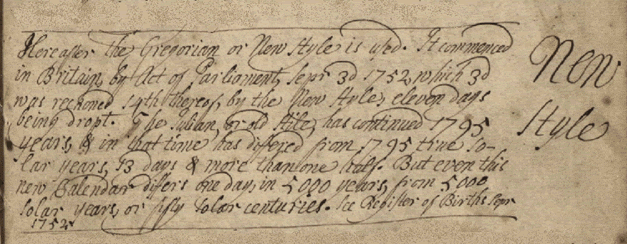 Hereafter the Gregorian or New Style is used. It commenced
in Britain, by Act of Parliament, Sepr 3d 1752, which 3d
was reckoned 14th thereof, by the New Style, eleven days
being dropt. The Julian, or old Stile, has continued 1795
years, & in that time has differed from 1795 true so-
lar years, 13 days & more than one half. But even this
new Calendar differs one day, in 5000 years, from 5000
Solar years, or fifty Solar centuries. See Register of Births Sepr
1752
New
Style